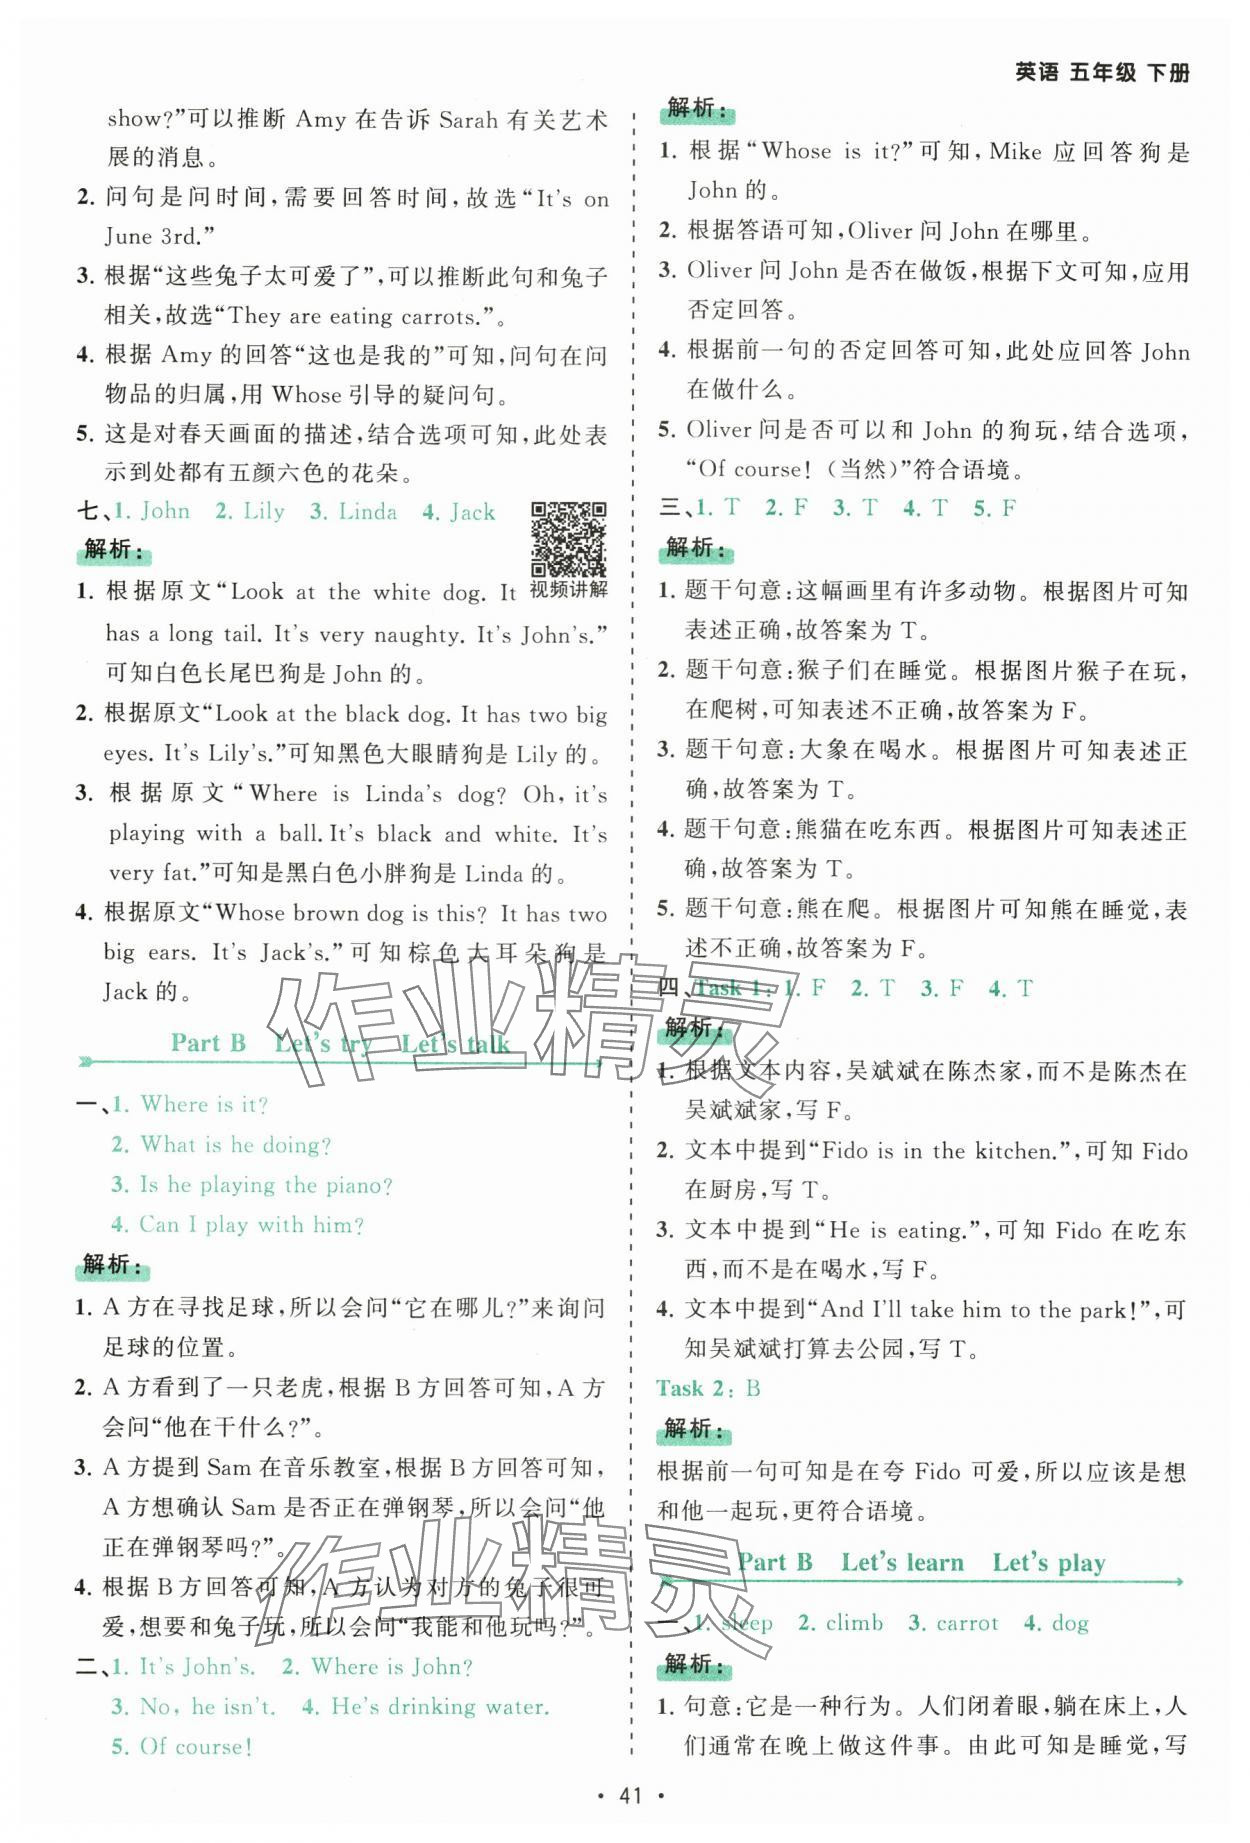 英语 五年级 下册
show?”可以推断 Amy 在告诉 Sarah 有关艺术
展的消息。
2. 问句是问时间,需要回答时间,故选“It's on
June 3rd.”
3. 根据“这些兔子太可爱了”,可以推断此句和兔子
相关,故选“They are eating carrots.”。
4. 根据 Amy 的回答“这也是我的”可知,问句在问
物品的归属,用 Whose 引导的疑问句。
5. 这是对春天画面的描述,结合选项可知,此处表
示到处都有五颜六色的花朵。
七、1. John 2. Lily 3. Linda 4. Jack
解析:
视频讲解
1. 根据原文“Look at the white dog. It
has a long tail. It's very naughty. It's John's.”
可知白色长尾巴狗是 John 的。
2. 根据原文“Look at the black dog. It has two big
eyes. It's Lily's.”可知黑色大眼睛狗是 Lily 的。
3. 根据原文“Where is Linda's dog? Oh, it's
playing with a ball. It's black and white. It's
very fat.”可知是黑白色小胖狗是 Linda 的。
4. 根据原文“Whose brown dog is this? It has two
big ears. It's Jack's.”可知棕色大耳朵狗是
Jack 的。
Part B Let's try Let's talk
一、1. Where is it?
2. What is he doing?
3. Is he playing the piano?
4. Can I play with him?
解析:
1. A 方在寻找足球,所以会问“它在哪儿?”来询问
足球的位置。
2. A 方看到了一只老虎,根据 B 方回答可知,A 方
会问“他在干什么?”。
3. A 方提到 Sam 在音乐教室,根据 B 方回答可知,
A 方想确认 Sam 是否正在弹钢琴,所以会问“他
正在弹钢琴吗?”。
4. 根据 B 方回答可知,A 方认为对方的兔子很可
爱,想要和兔子玩,所以会问“我能和他玩吗?”。
二、1. It's John's. 2. Where is John?
3. No, he isn't. 4. He's drinking water.
5. Of course!
解析:
1. 根据“Whose is it?”可知,Mike 应回答狗是
John 的。
2. 根据答语可知,Oliver 问 John 在哪里。
3. Oliver 问 John 是否在做饭,根据下文可知,应用
否定回答。
4. 根据前一句的否定回答可知,此处应回答 John
在做什么。
5. Oliver 问是否可以和 John 的狗玩,结合选项,
“Of course!(当然)”符合语境。
三、1. T 2. F 3. T 4. T 5. F
解析:
1. 题干句意:这幅画里有许多动物。根据图片可知
表述正确,故答案为 T。
2. 题干句意:猴子们在睡觉。根据图片猴子在玩,
在爬树,可知表述不正确,故答案为 F。
3. 题干句意:大象在喝水。根据图片可知表述正
确,故答案为 T。
4. 题干句意:熊猫在吃东西。根据图片可知表述正
确,故答案为 T。
5. 题干句意:熊在爬。根据图片可知熊在睡觉,表
述不正确,故答案为 F。
四、Task 1: 1. F 2. T 3. F 4. T
解析:
1. 根据文本内容,吴斌斌在陈杰家,而不是陈杰在
吴斌斌家,写 F。
2. 文本中提到“Fido is in the kitchen.”,可知 Fido
在厨房,写 T。
3. 文本中提到“He is eating.”,可知 Fido 在吃东
西,而不是在喝水,写 F。
4. 文本中提到“And I'll take him to the park!”,可
知吴斌斌打算去公园,写 T。
Task 2: B
解析:
根据前一句可知是在夸 Fido 可爱,所以应该是想
和他一起玩,更符合语境。
Part B Let's learn Let's play
一、1. sleep 2. climb 3. carrot 4. dog
解析:
1. 句意:它是一种行为。人们闭着眼,躺在床上,人
们通常在晚上做这件事。由此可知是睡觉,写
作业精灵
作业精灵
• 41 •